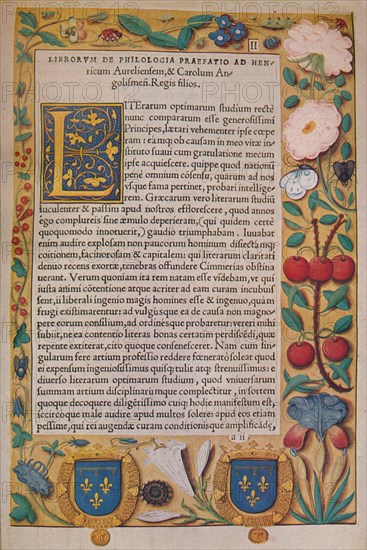 II
LIBRORVM DE PHILOLOGIA PRAEFATIO AD HEN/
ricum Aureliensem, & Carolum An/
golismeñ. Regis filios.
LITErarum optimarum studium recte
nunc comparatum esse generosissimi
Principes, lætari vehementer ipse cœpe
ram: eamq; causam in meo vitæ in/
stituto suaui cum gratulatione mecum
ipse acquiescere. quippe quod nationi
pene omnium consensu, quarum ad nos
vsque fama pertinet, probari intellige
rem. Græcarum vero literarum studium
luculenter & passim apud nostros efflorescere, quod annos
ego complureis sine æmulo deperieram, (qui quidem certe
quoquomodo innotuerit,) gaudio triumphabam. Iuuabat
enim audire explosam non paucorum hominum
opinionem, facinorosam & capitalem: qui literarum claritati
denuo récens exortæ, tenebras offundere Cimmerias obstina
uerant. Verum quoniam ita rem natam esse videbam, vt qui
iusta animi cótentione atque acriter ad eam curam incubuis
sent, ii liberali ingenio magis homines esse & ingenuo, quàm
frugi existimarentur: ad vulgusque ea de causa non magno/
pere eorum consilium, ad ordinesque probaretur: vereri mihi
subiit, ne ea contentio literas bonas certatim perdiscédi, quæ
repente exciteraret, cito quoque consenesceret. Nam cum sin
gularum fere artium professio reddere fœnerato soleat quod
ei expensum ingeniosissimus quisq; tulit atq; strenuissimus: e
diuerso literarum optimarum studium, quod vniuersarum
summam artium disciplinarumque complectitur, in sortem
quoque decoquere diligétissimo cuiq; hodie manifestum est,
idcircoque male audire apud multos solere: apud eos etiam
pessime, qui rei augendæ curam conditionisque amplificãdæ,
a ii